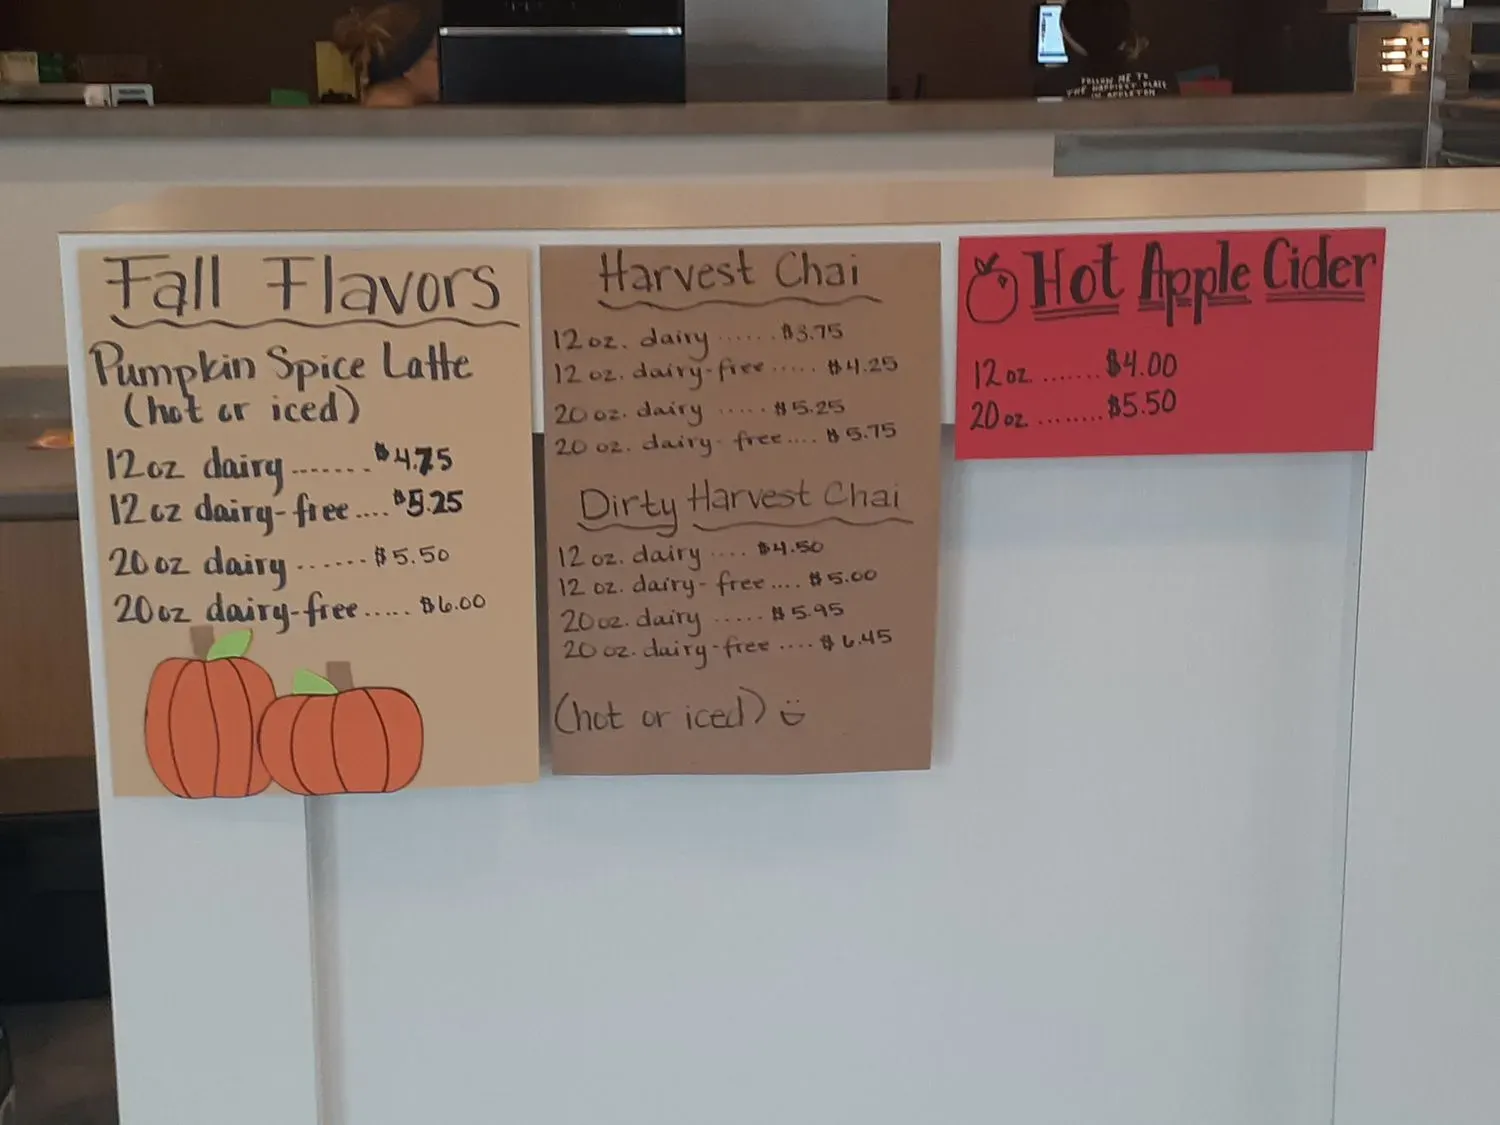 FOLLOW ME TO
THE HAPPIEST PLACE
IN APPLETON
Fall Flavors
Pumpkin Spice Latte
(hot or iced)
12oz dairy.......$4.75
12oz dairy-free....$5.25
20oz dairy.......$5.50
20oz dairy-free.....$6.00
Harvest Chai
12oz. dairy ......$3.75
12 oz. dairy-free .....$4.25
20oz. dairy .....$5.25
20oz. dairy-free....$5.75
Dirty Harvest Chai
12oz. dairy ....$4.50
12 oz. dairy-free ....$5.00
20oz. dairy ......$5.95
20oz. dairy-free ....$6.45
(hot or iced)
Hot Apple Cider
12oz.......$4.00
20oz........$5.50